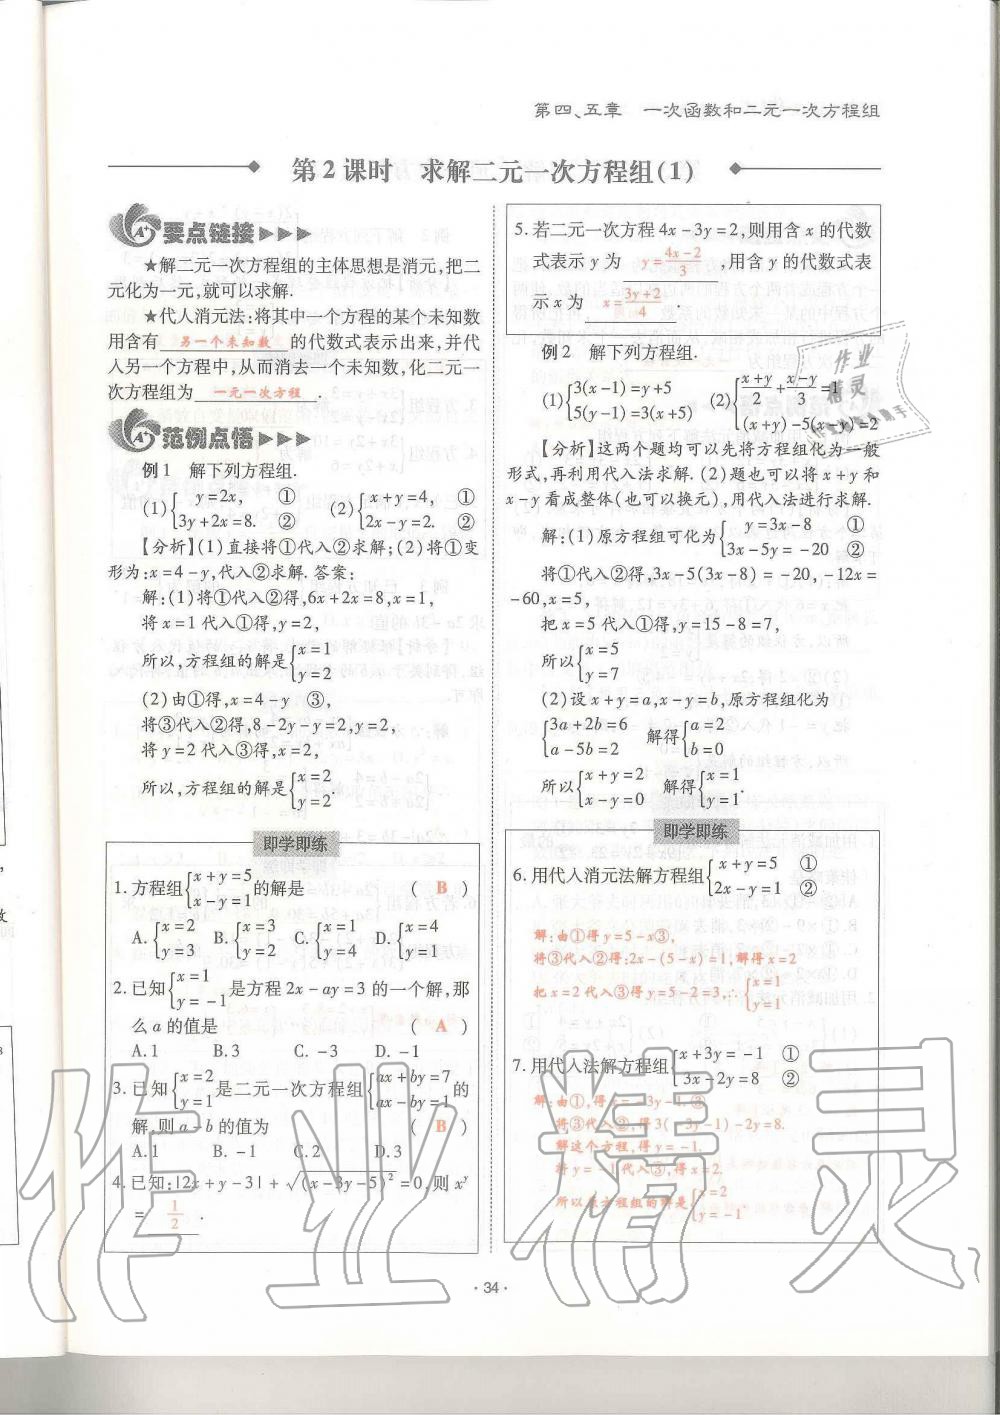 第四、五章　一次函数和二元一次方程组
第2课时　求解二元一次方程组(1)
A+ 要点链接
★解二元一次方程组的主体思想是消元,把二
元化为一元,就可以求解.
★代人消元法:将其中一个方程的某个未知数
用含有 另一个未知数 的代数式表示出来,并代
入另一个方程中,从而消去一个未知数,化二元一
次方程组为 一元一次方程 .
A+ 范例点悟
例1　解下列方程组.
(1){y=2x, ① 3y+2x=8. ② (2){x+y=4, ① 2x-y=2. ②
【分析】(1)直接将①代入②求解;(2)将①变
形为:x=4-y,代入②求解. 答案:
解:(1)将①代入②得,6x+2x=8,x=1,
将x=1代入①得,y=2,
所以,方程组的解是{x=1 y=2
(2)由①得,x=4-y　③,
将③代入②得,8-2y-y=2,y=2,
将y=2代入③得,x=2,
所以,方程组的解是{x=2 y=2.
即学即练
1.方程组{x+y=5 x-y=1的解是 ( B )
A.{x=2 y=3 B.{x=3 y=2 C.{x=1 y=4 D.{x=4 y=1
2.已知{x=1 y=-1是方程2x-ay=3的一个解,那
么a的值是 ( A )
A.1 B.3 C.-3 D.-1
3.已知{x=2 y=1是二元一次方程组{ax+by=7 ax-by=1的
解,则a-b的值为 ( B )
A.1 B.-1 C.2 D.3
4.已知:|2x+y-3|+√(x-3y-5)²=0,则x^y
= 1/2 .
5.若二元一次方程4x-3y=2,则用含x的代数
式表示y为 y=(4x-2)/3 ,用含y的代数式表
示x为 x=(3y+2)/4 .
例2　解下列方程组.
(1){3(x-1)=y+5 5(y-1)=3(x+5) (2){(x+y)/2+(x-y)/3=1 (x+y)-5(x-y)=2
【分析】这两个题均可以先将方程组化为一般
形式,再利用代入法求解.(2)题也可以将x+y和
x-y看成整体(也可以换元),用代入法进行求解.
解:(1)原方程组可化为{y=3x-8 ① 3x-5y=-20 ②
将①代入②得,3x-5(3x-8)=-20,-12x=
-60,x=5,
把x=5代入①得,y=15-8=7,
所以{x=5 y=7
(2)设x+y=a,x-y=b,原方程组化为
{3a+2b=6 a-5b=2 解得{a=2 b=0
所以{x+y=2 x-y=0 解得{x=1 y=1.
即学即练
6.用代入消元法解方程组{x+y=5 ① 2x-y=1 ②
解:由①得y=5-x③,
将③代入②得:2x-(5-x)=1,解得x=2
把x=2代入③得y=5-2=3,∴{x=1 y=1
7.用代入法解方程组{x+3y=-1 ① 3x-2y=8 ②
解:由①,得x=-3y-1.③
将③代入②,得3(-3y-1)-2y=8.
解这个方程,得y=-1.
将y=-1代入③,得x=2.
所以原方程组的解是{x=2 y=-1
· 34 ·
作业精灵
作业
精灵